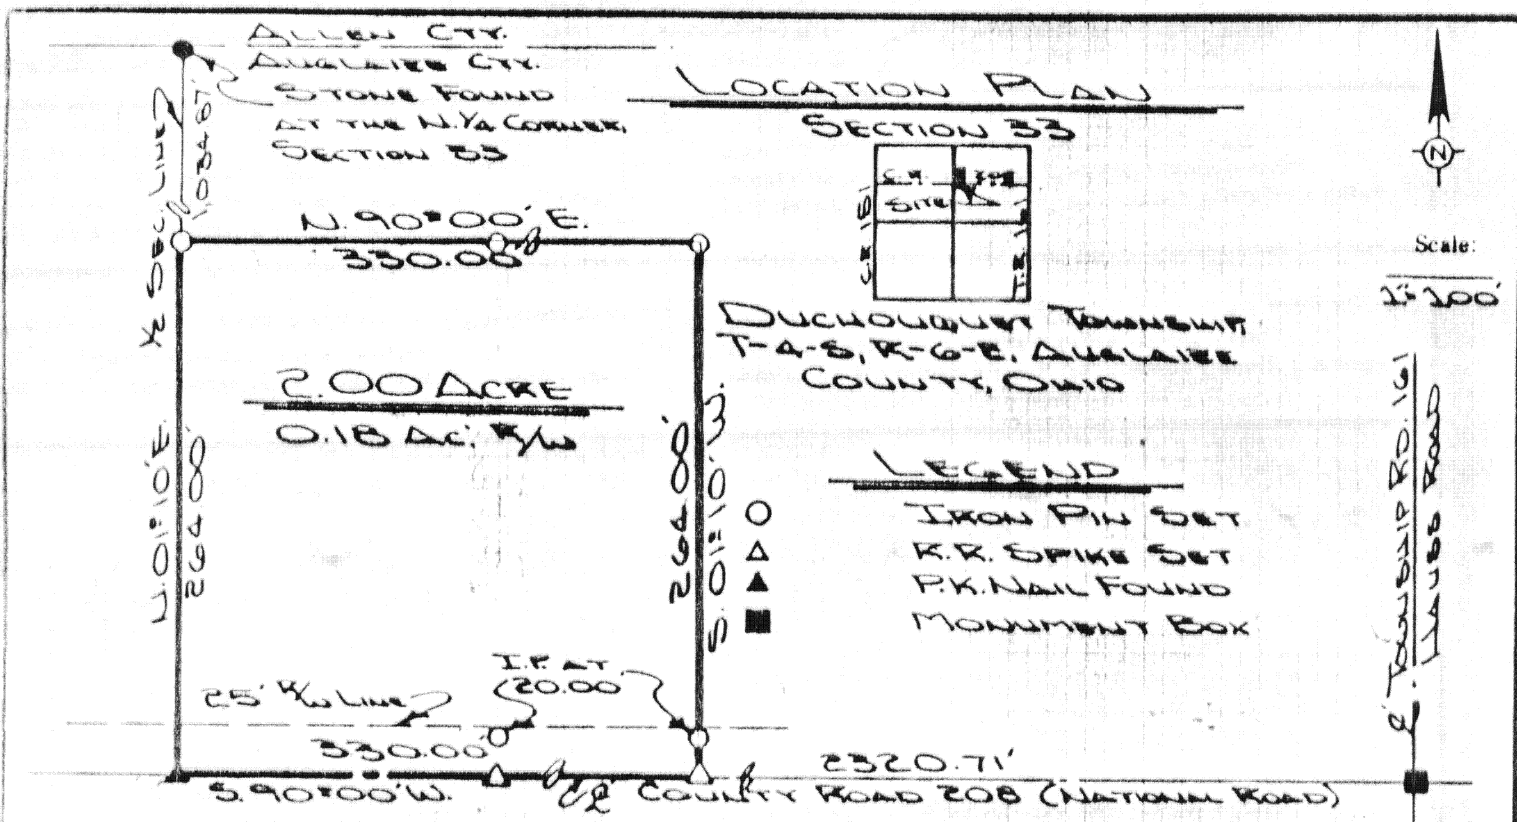 ALLEN CTY.
AUGLAIZE CTY.
STONE FOUND
AT THE N.1/4 CORNER,
SECTION 33
1034.67'
1/2 SEC. LINE
LOCATION PLAN
SECTION 33
SITE
C.R. 15
T.R. 161
N
Scale:
1"=100'
N. 90°00' E.
330.00'
DUCHOUQUET TOWNSHIP,
T-4-S, R-6-E, AUGLAIZE
COUNTY, OHIO
2.00 ACRE
0.18 AC. R/W
N. 01°10' E.
264.00'
264.00'
S. 01°10' W.
LEGEND
IRON PIN SET
R.R. SPIKE SET
P.K. NAIL FOUND
MONUMENT BOX
TOWNSHIP RD. 161
ROAD
I.P. AT
20.00'
25' R/W LINE
330.00'
2320.71'
S. 90°00' W.
℄ COUNTY ROAD 208 (NATIONAL ROAD)